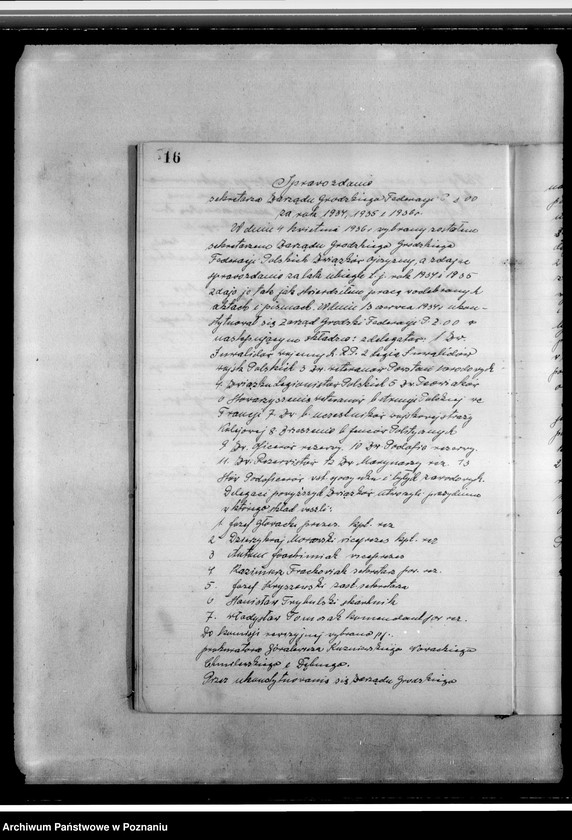 16
Sprawozdanie
sekretarza Zarządu Grodzkiego Federacji P. Z. O. O.
za rok 1934, 1935 i 1936 r.
W dniu 4 kwietnia 1936 r. wybrany zostałem
sekretarzem Zarządu Grodzkiego Grodzkiego
Federacji Polskich Związków Ojczyzny, a zdając
sprawozdanie za lata ubiegłe t. j. rok 1934 i 1935
zdaję je tak jak stwierdziłem pracę
aktach i pismach. W dniu 13 1934 ukon-
stytuował się Zarząd Grodzki Federacji P. Z. O. O. w
następującym składzie: z delegatów 1 Zw.
Inwalidów wojennych R.P. 2 Legia Inwalidów
wojsk Polskich 3 Zw. weteranów Powstań narodowych
4. Związku Legionistów Polskich 5 Zw. Peowiaków
6 Stowarzyszenie weteranów b. armji Polskiej we
Francji 7 Zw. b. uczestników wojskowej straży
Kolejowej 8 Zrzeszenie b. Politycznych
9 Zw. Oficerów rezerwy. 10 Zw. Podofic. rezerwy.
11 Zw. Rezerwistów 12 Zw. Marynarzy rez. 13
Stow. Podoficerów i byłych zawodowych.
Delegaci powyższych Związków utworzyli prezydium
w którego skład weszli:
1. Józef Głowacki prezes. kpt. rez
2 Dzierżykraj Morawski viceprezes kpt. rez
3 Antoni Joachimiak viceprezes
4 Kazimierz Frackowiak sekretarz por. rez.
5. Józef Kryszewski zast. sekretarza
6 Stanisław Trybulski skarbnik
7. Władysław Tomczak komendant por. rez.
Do komisji rewizyjnej wybrano pp.
prokuratora Kuzniewskiego Nowackiego
Chmilewskiego i
Przez ukonstytuowanie się Zarządu Grodzkiego
Archiwum Państwowe w Poznaniu